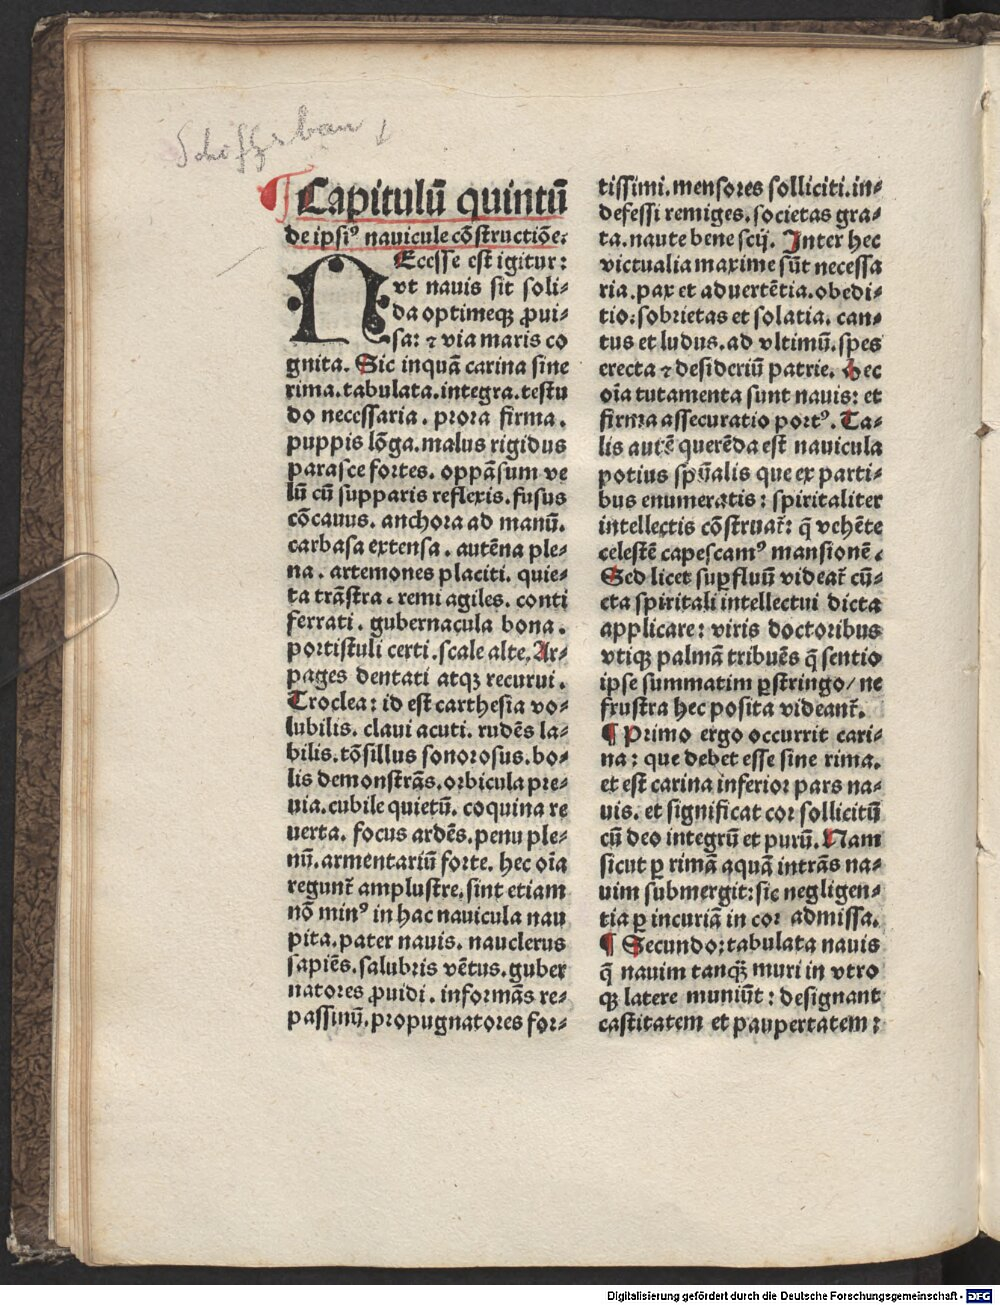 Schiffsbau
¶ Capitulū quintū
de ipsiꝰ nauicule cōstructiōe.
NEcesse est igitur:
vt nauis sit soli⸗
da optimeqꝫ ꝓui⸗
sa: ⁊ via maris co
gnita. Sic inquā carina sine
rima. tabulata. integra. testu
do necessaria. prora firma.
puppis lōga. malus rigidus
parasce fortes. oppāsum ve
lū cū supparis reflexis. fusus
cōcauus. anchora ad manū.
carbasa extensa. autēna ple⸗
na. artemones placiti. quie⸗
ta trāstra. remi agiles. conti
ferrati. gubernacula bona.
portistuli certi. scale alte. Ar⸗
pages dentati atqꝫ recurui.
Troclea: id est carthesia vo⸗
lubilis. claui acuti. rudēs la⸗
bilis. tōsillus sonorosus. bo⸗
lis demonstrās. orbicula pre⸗
uia. cubile quietū. coquina re
uerta. focus ardēs. penu ple⸗
nū. armentariū forte. hec oīa
regunt̄ amplustre. sint etiam
nō minꝰ in hac nauicula nau
pita. pater nauis. nauclerus
sapiēs. salubris vētus. guber
natores ꝓuidi. informās re⸗
passinū. propugnatores for⸗
tissimi. mensores solliciti. in⸗
defessi remiges. societas gra⸗
ta. naute bene scij. Inter hec
victualia maxime sūt necessa
ria. pax et aduertētia. obedi⸗
tio: sobrietas et solatia. can⸗
tus et ludus. ad vltimū. spes
erecta ⁊ desideriū patrie. Hec
oīa tutamenta sunt nauis: et
firma assecuratio portꝰ. Ta⸗
lis autē querēda est nauicula
potius spūalis que ex parti⸗
bus enumeratis: spiritaliter
intellectis cōstruat̄: q̄ vehēte
celestē capescamꝰ mansionē.
Sed licet suꝑfluū videat̄ cū⸗
cta spiritali intellectui dicta
applicare: viris doctoribus
vtiqꝫ palmā tribuēs q̄ sentio
ipse summatim ꝑstringo/ ne
frustra hec posita videant̄.
¶ Primo ergo occurrit cari⸗
na: que debet esse sine rima.
et est carina inferior pars na⸗
uis. et significat cor sollicitū
cū deo integrū et purū. Nam
sicut ꝑ rimā aquā intrās na⸗
uim submergit: sic negligen⸗
tia ꝑ incuriā in cor admissa.
¶ Secundo: tabulata nauis
q̄ nauim tanqꝫ̄ muri in vtro
qꝫ latere muniūt: designant
castitatem et paupertatem:
Digitalisierung gefördert durch die Deutsche Forschungsgemeinschaft - DFG